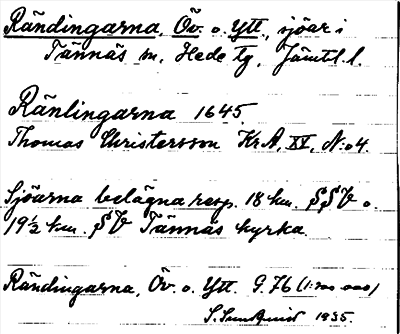 Rändingarna, Öv. o. Ytt., sjöar i
Tännäs sn, Hede tg, Jämtl. l.
Ränlingarna 1645.
Thomas Christersson KrA, XV, N:o 4.
Sjöarna belägna resp. 18 km. SSV o.
19½ km. SV Tännäs kyrka.
Rändingarna, Öv. o. Ytt. G.76 (1:200 000)
S. Sundquist 1935.